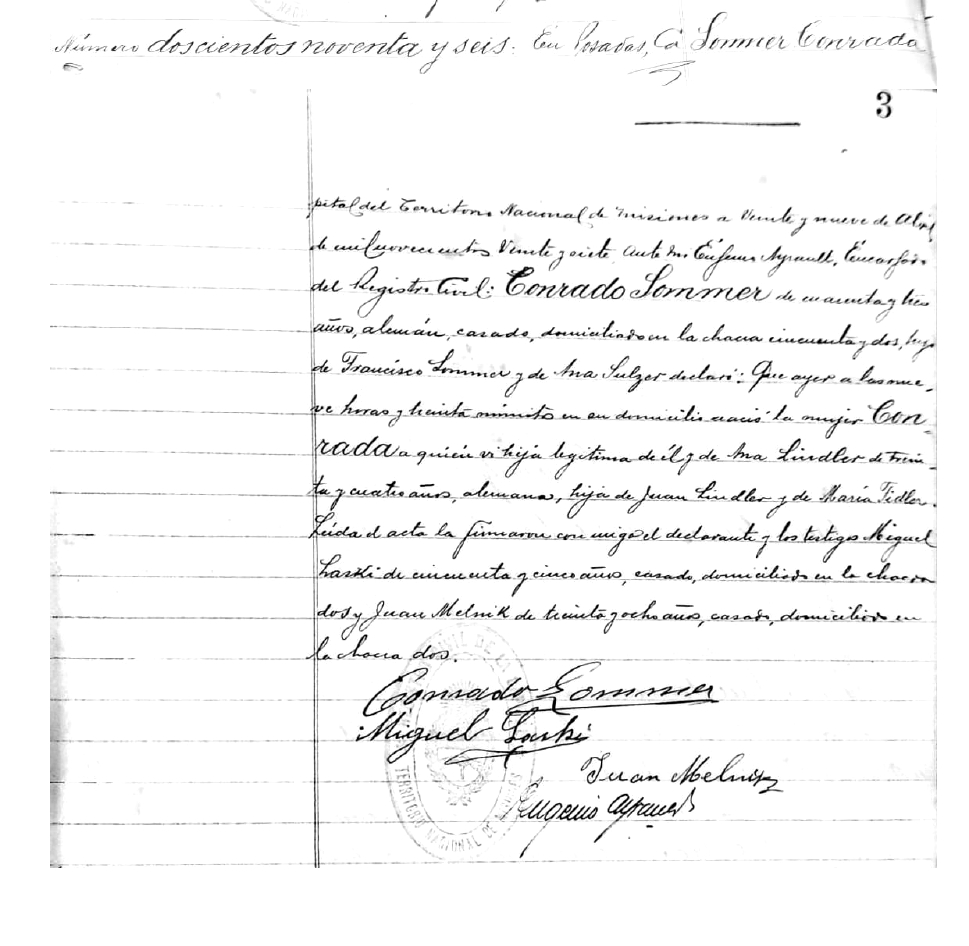 Número doscientos noventa y seis. En Posadas, Ca Sommer Conrada
3
pital del Territorio Nacional de Misiones a Veinte y nueve de Abril
de mil novecientos Veinte y siete ante mi Eugenio Ayrault, Encargado
del Registro Civil: Conrado Sommer de cuarenta y tres
años, alemán, casado, domiciliado en la chacra cincuenta y dos, hijo
de Francisco Sommer y de Ana Sulzer declaró: Que ayer a las nue-
ve horas y treinta minutos en su domicilio nació la mujer Con-
rada a quién vi hija legitima de él y de Ana Lindler de trein-
ta y cuatro años, alemana, hija de Juan Lindler y de María Fidler.
Leída el acta la firmaron conmigo el declarante y los testigos Miguel
Laski de cincuenta y cinco años, casado, domiciliado en la chacra
dos y Juan Melnik de treinta y ocho años, casado, domiciliado en
la chacra dos.
Conrado Sommer
Miguel Laski
Juan Melnik
Eugenio Ayrault
TERRITORIO NACIONAL DE MISIONES